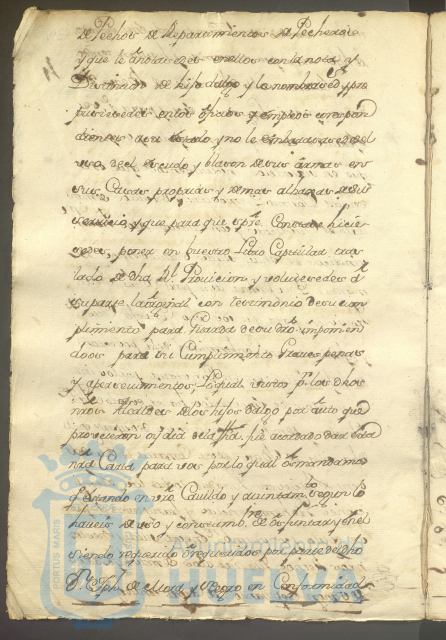 de Pechos de Repartimientos de Pecheros
y que le anotaredes en ellos con la nota y
Distincion de hijo dalgo y lo nombraredes y pro
pusieredes en los oficios y empleos correspon
dientes a su estado y no le embarazaredes el
uso del escudo y blason de sus armas en
sus Casas propias y demas alhajas de su
servicio, y que para que spre. Conste hicie
sedes poner en vuestro Libro Capitular tras
lado de dha Rl. Provicion y volviesedes a
su parte la original con testimonio de su cum
plimiento para Guarda de su dro. imponien
doos para su Cumplimiento Graves penas
y apercevimientos, Lo qual visto por los dhos
nros Alcaldes de los hijos dalgo por auto que
proveieron oy dia de la fha. fue acordado dar esta
nra Carta para vos por lo qual os mandamos
q. estando en vro. Cavildo y aiuntamto. segun lo
haveis de uso y costumb. de os juntar y en el
siendo requerido o requeridos por parte del dho
Dn. Jph. de Mora y Negro en Conformidad
PORTUS MARIS